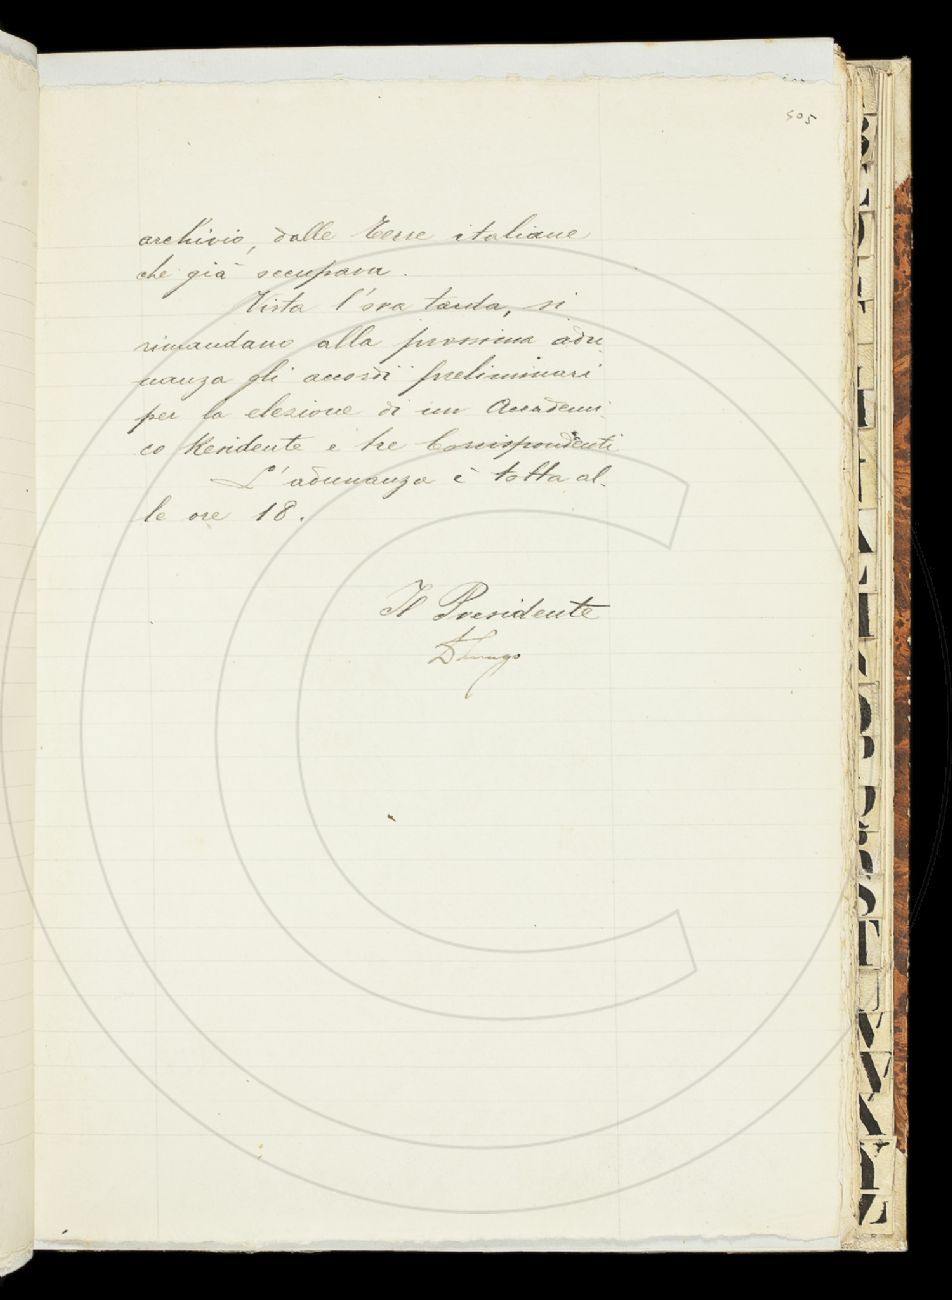 405
archivio, dalle terre italiane
che già occupava.
Vista l'ora tarda, si
rimandano alla prossima adu-
nanza gli accordi preliminari
per la elezione di un Accademi-
co Residente e tre Corrispondenti
L'adunanza è tolta al-
le ore 18.
Il Presidente